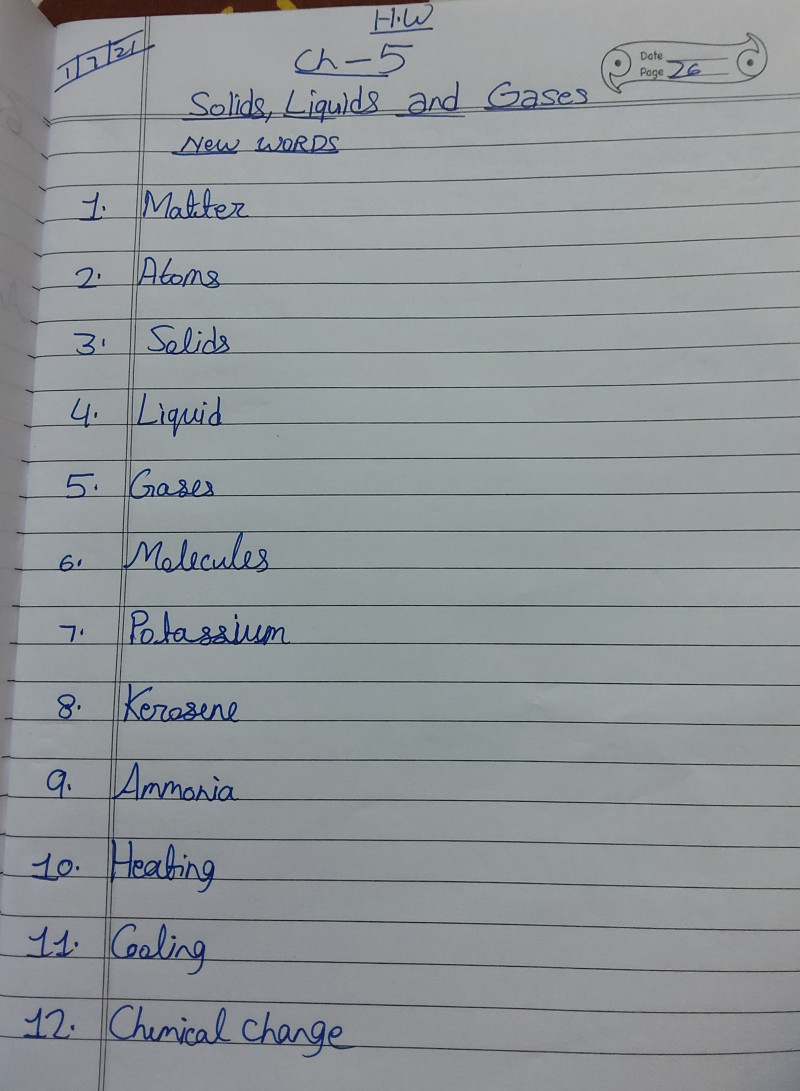 H.W
1/7/21
Ch - 5
Date
Page 26
Solids, Liquids and Gases
New WORDS
1. Matter
2. Atoms
3. Solids
4. Liquid
5. Gases
6. Molecules
7. Potassium
8. Kerosene
9. Ammonia
10. Heating
11. Cooling
12. Chemical change